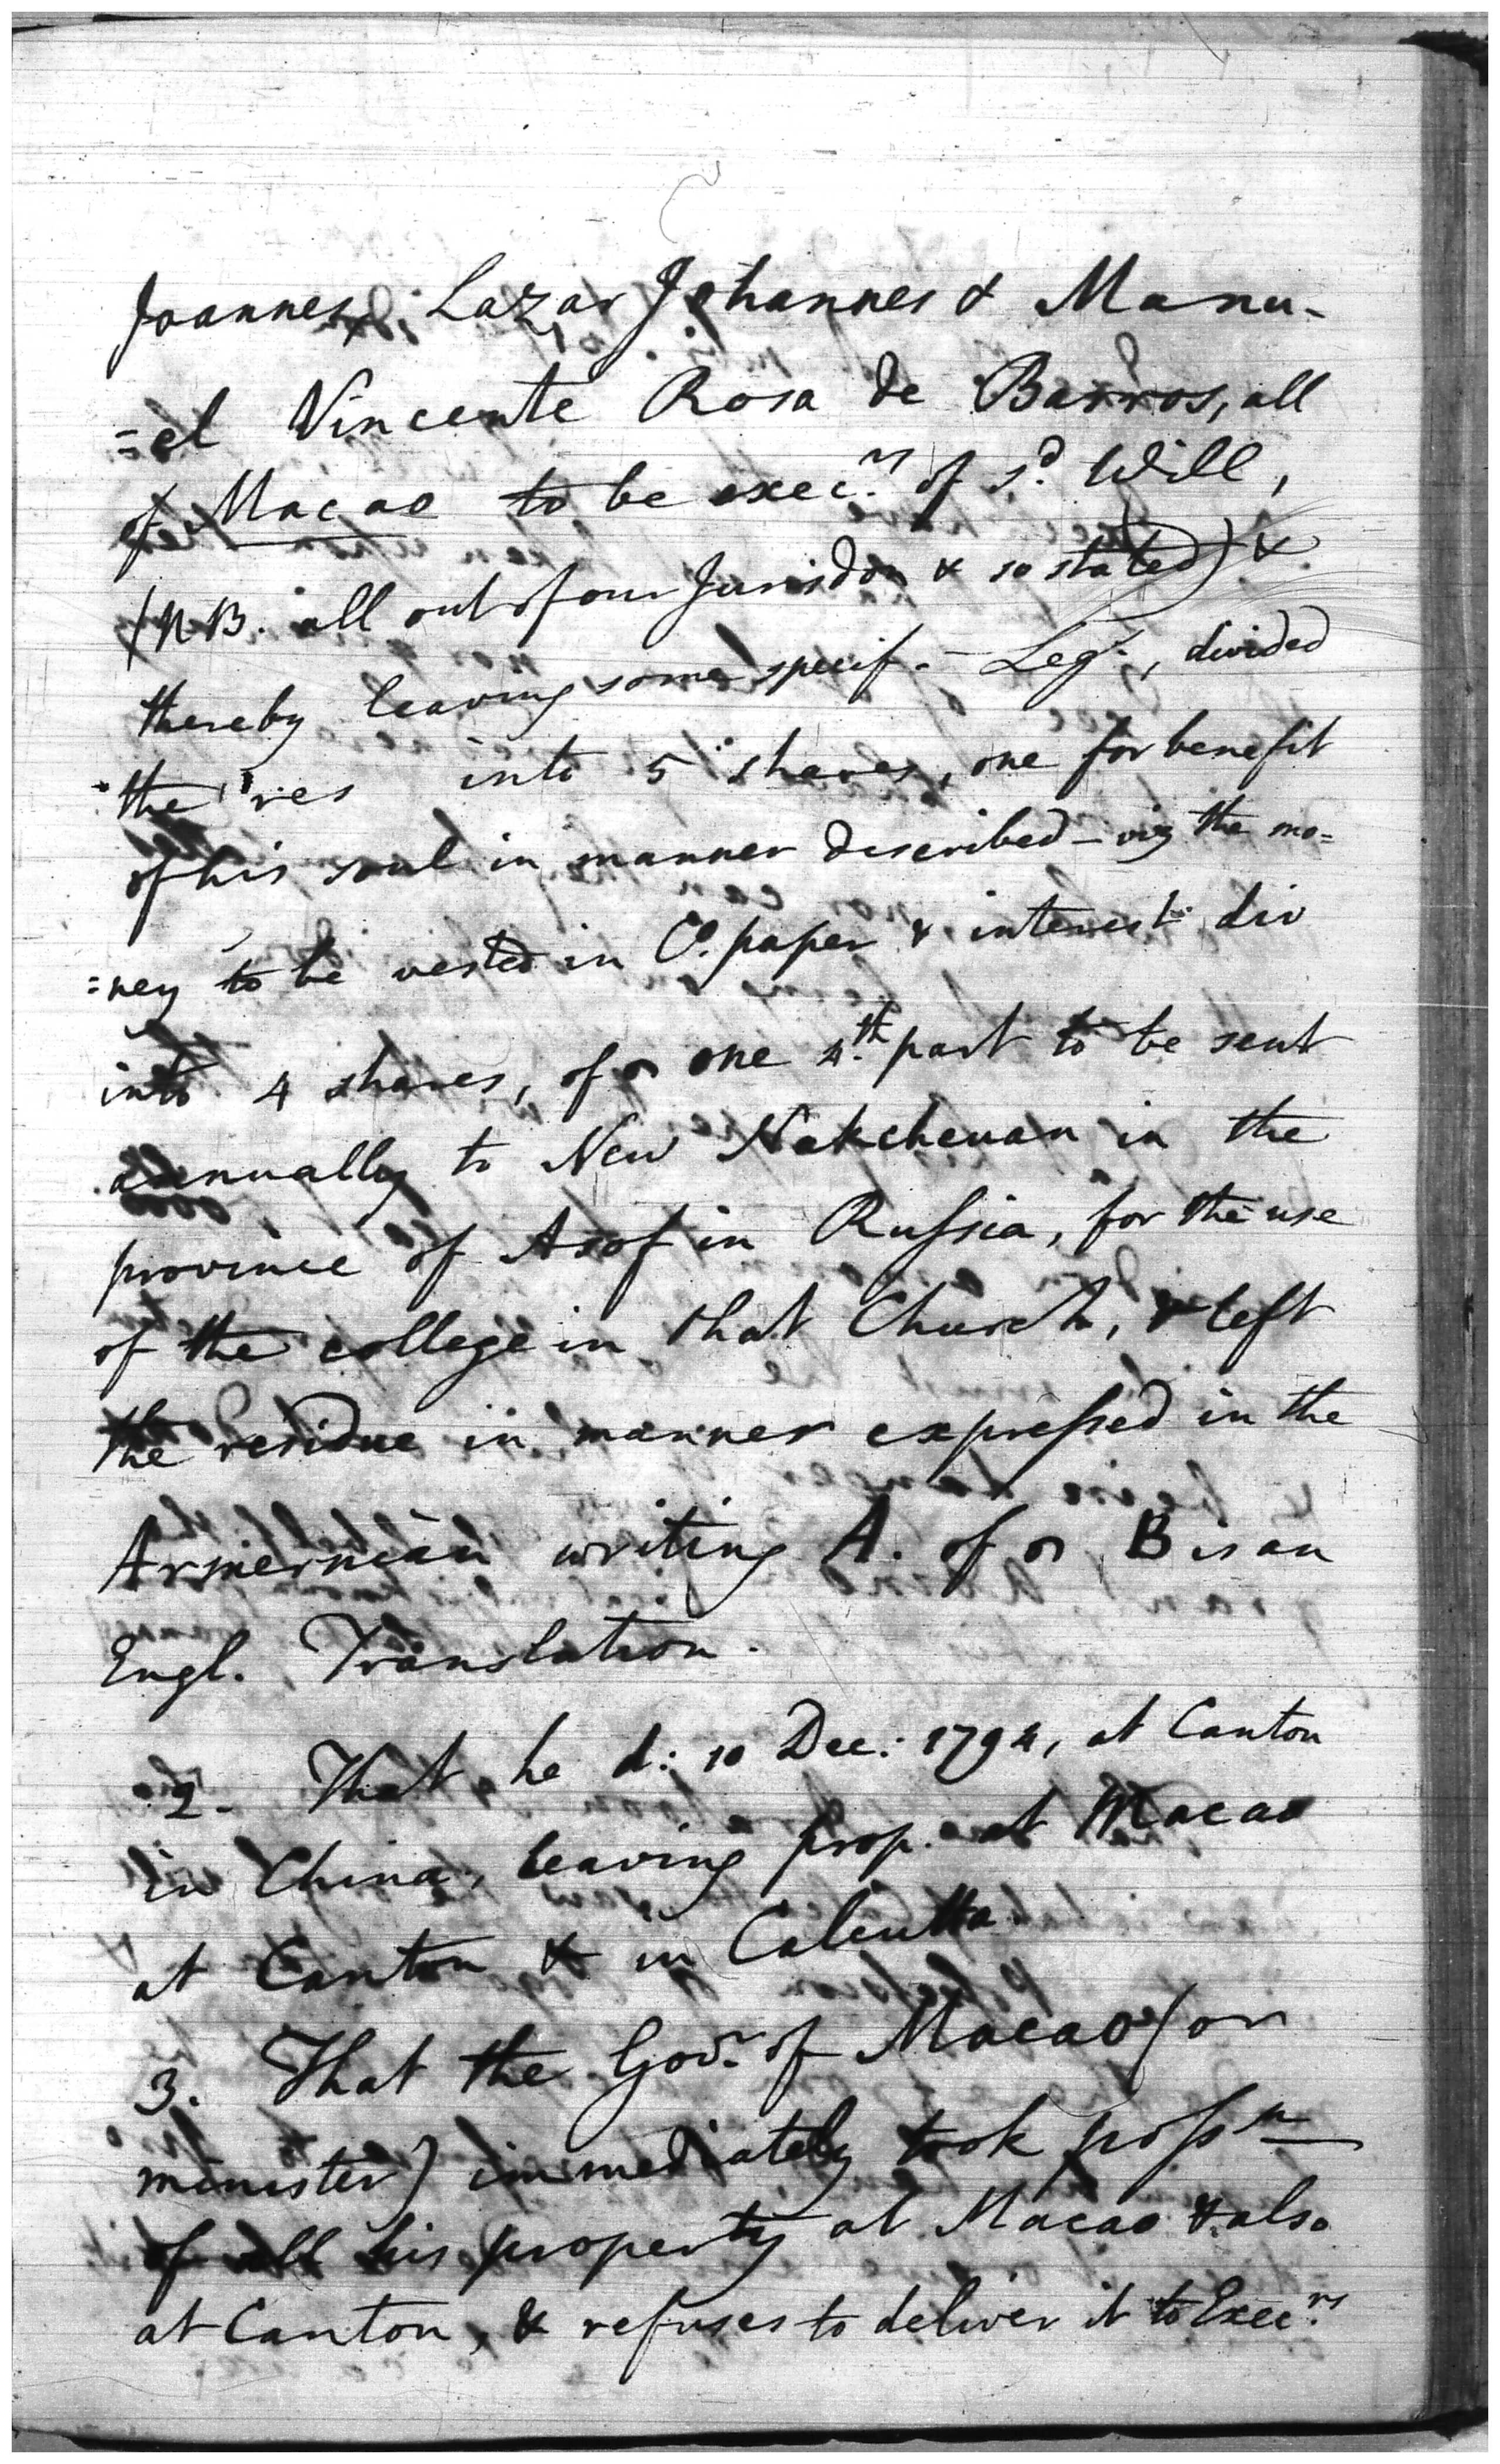 Joannes, Lazar Johannes & Manu-
=el Vincente Rosa de Barros, all
of Macao to be exec.rs of s.d Will,
(NB. all out of our Jurisdon & so stated) &
thereby leaving some specif. Leg.s, divided
the res into 5 shares, one for benefit
of his soul in manner described - viz the mo=
=ney to be vested in Co. paper & interest div
into 4 shares, of one 4.th part to be sent
annually to New Nakchewan in the
province of Asof in Russia, for the use
of the college in that Church, & left
the residue in manner expressed in the
Armernian writing A. of B is an
Engl. Translation.
2. That he d: 10 Dec: 1794, at Canton
in China, leaving prop. at Macao
at Canton & in Calcutta.
3. That the Gov.r of Macao (or
minister) immediately took poss.n
of all his property at Macao & also
at Canton, & refuses to deliver it to Exec.rs